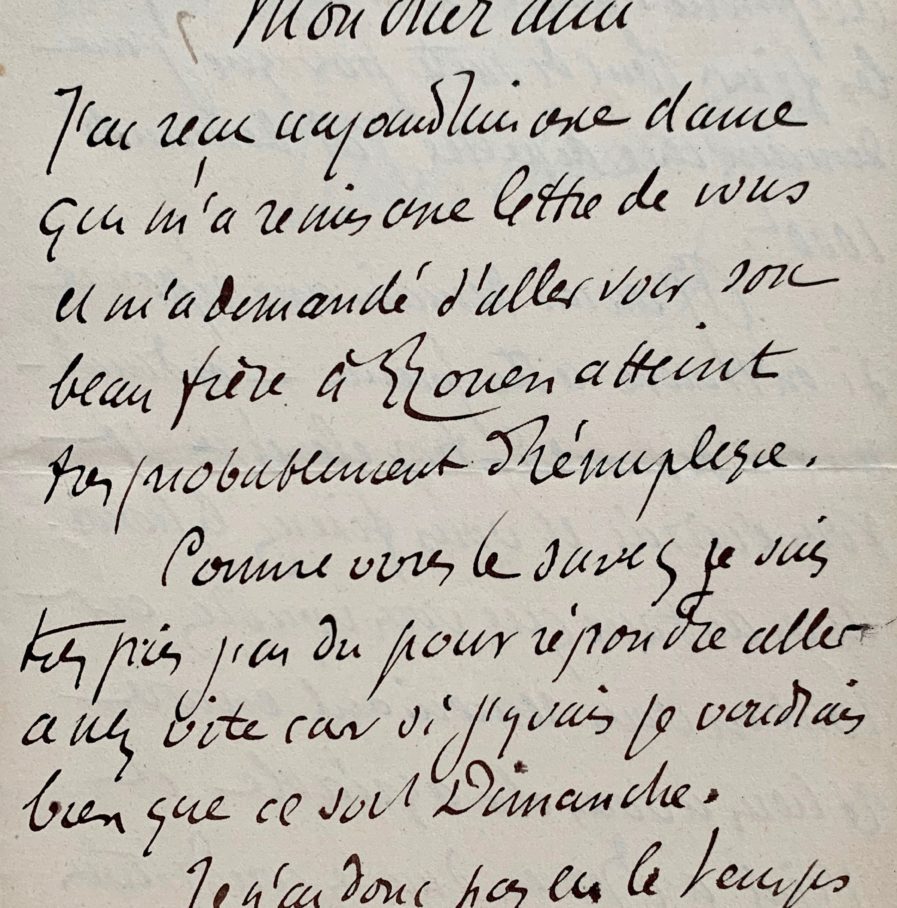 Mon cher ami
J'ai reçu aujourd'hui une dame
qui m'a remis une lettre de vous
et m'a demandé d'aller voir son
beau frère à Rouen atteint
très probablement d'hémiplegie.
Comme vous le savez je suis
très pris j'ai du pour répondre aller
assez vite car si j'y vais je voudrais
bien que ce soit Dimanche.
Je n'ai donc pas eu le temps